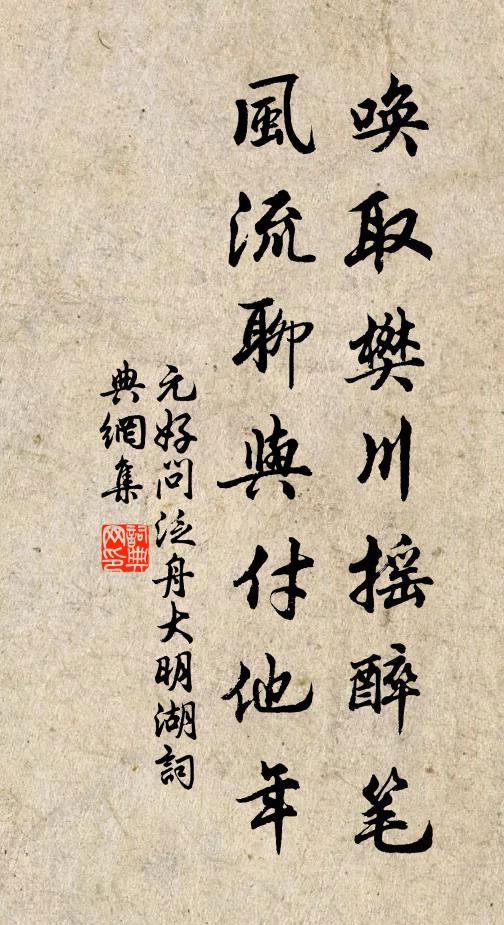 唤取樊川摇醉笔
風流聊與付他年
元好问泛舟大明湖詞
典網集
詞典网印